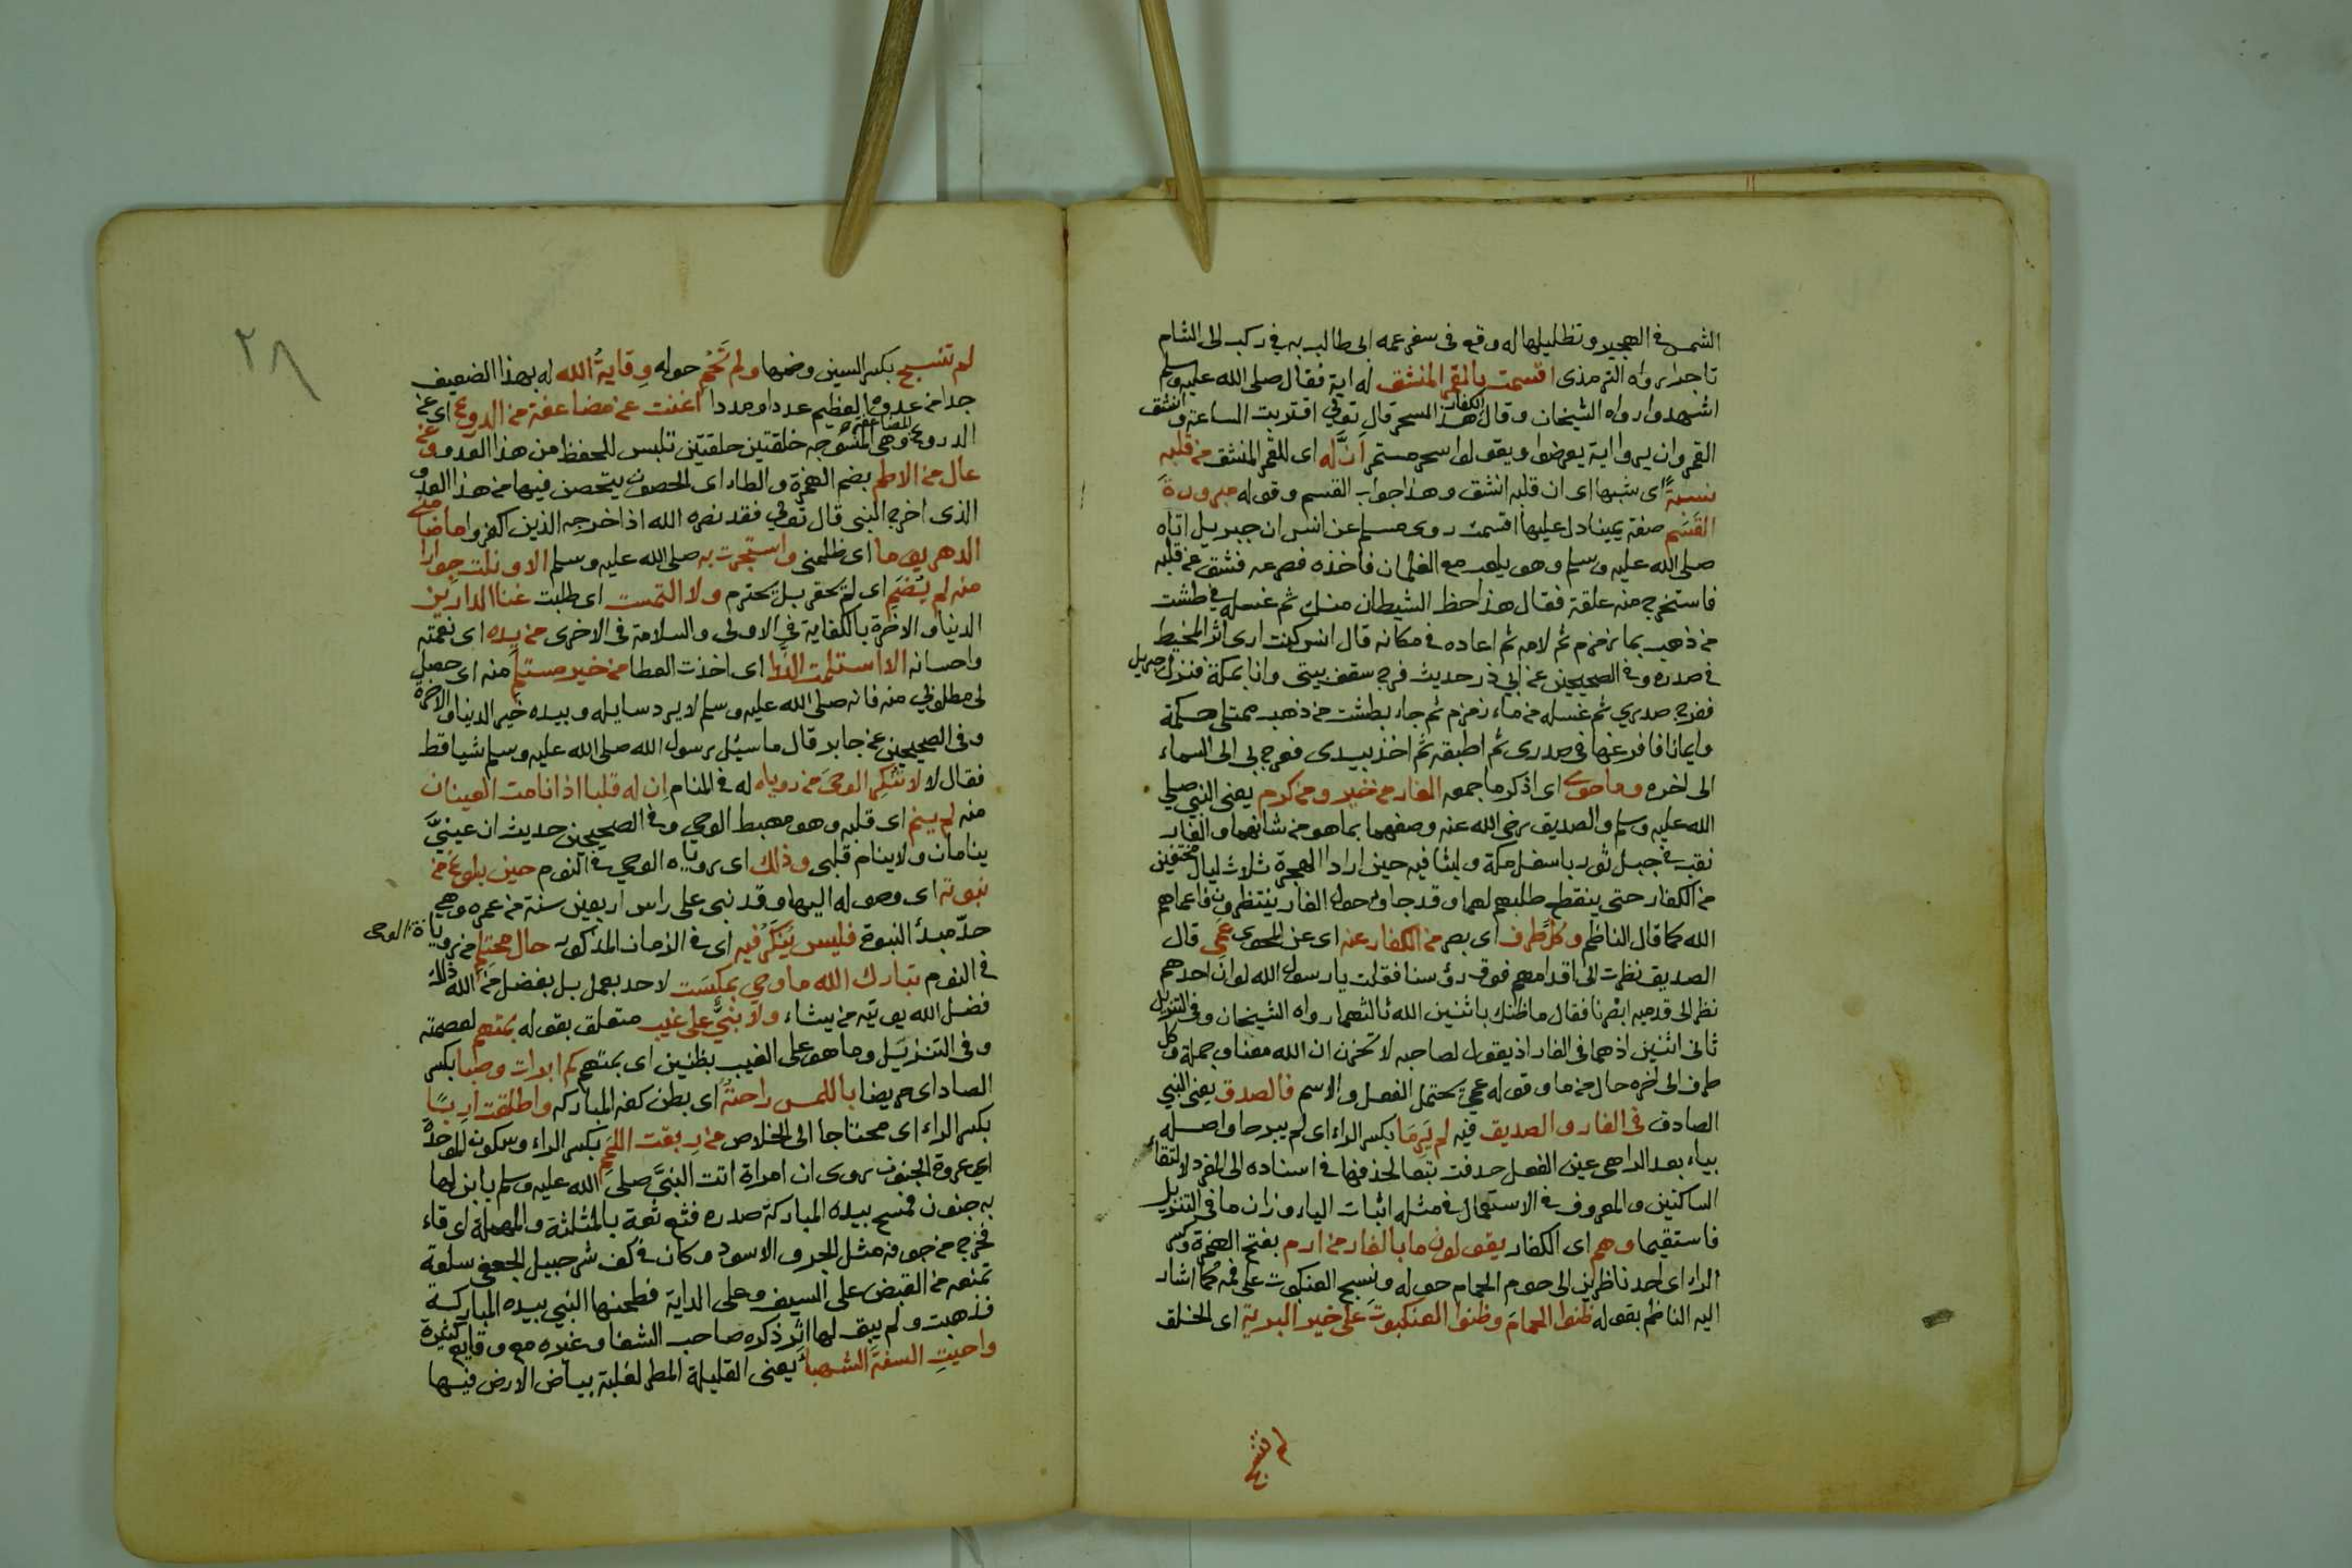 الشمس في الهجير وتظليلها له وقع في سفر عمه ابي طالب به في ركب الى الشام
تاجرا رواه الترمذى اقسمت بالقمر المنشق له اية فقال صلى الله عليه وسلم
اشهدوا رواه الشيخان وقال الكفار هذا السحر قال تعالى اقتربت الساعة وانشق
القمر وان يروا اية يعرضوا ويقولوا سحر مستمر ان له اى للقمر المنشق من قلبه
نسبة اى شبها اى ان قلبه انشق وهذا جواب القسم وقوله مبرورة
القسم صفة يمينا دل عليها اقسمت روى مسلم عن انس ان جبريل اتاه
صلى الله عليه وسلم وهو يلعب مع الغلمان فاخذه فصرعه فشق عن قلبه
فاستخرج منه علقة فقال هذا حظ الشيطان منك ثم غسله في طشت
من ذهب بما زمزم ثم لامه ثم اعاده في مكانه قال انس كنت ارى اثر المخيط
في صدره وفي الصحيحين عن ابي ذر حديث فرج سقف بيتى وانا بمكة فنزل جبريل
ففرج صدري ثم غسله من ماء زمزم ثم جاء بطشت من ذهب ممتلى حكمة
وايمانا فافرغها في صدرى ثم اطبقه ثم اخذ بيدى فعرج بى الى السماء
الى اخره وما حوى اى اذكر ما جمعه الغار من خير ومن كرم يعنى النبي صلى
الله عليه وسلم والصديق رضى الله عنه وصفهما بما هو من شانهما والغار
نقب في جبل ثور باسفل مكة ولبثا فيه حين ارادا الهجرة ثلاث ليال مختفين
من الكفار حتى ينقطع طلبهم لهما وقد جاؤ حول الغار ينتظرون فاعماهم
الله كما قال الناظم وكل طرف اى بصر من الكفار عنه اى عن المحوى عمى قال
الصديق نظرت الى اقدامهم فوق رؤسنا فقلت يا رسول الله لو ان احدهم
نظر الى قدميه ابصرنا فقال ما ظنك باثنين الله ثالثهما رواه الشيخان وفي التنزيل
ثانى اثنين اذ هما فى الغار اذ يقول لصاحبه لا تحزن ان الله معنا وجملة وكل
طرف الى اخره حال من ما وقوله عمى يحتمل الفعل والاسم فالصدق يعنى النبي
الصادق فى الغار والصديق فيه لم يرما بكسر الراء اى لم يبرحا واصله
بياء بعد الراء هى عين الفعل حذفت تبعا لحذفها في اسناده الى المفرد لالتقاء
الساكنين والمعروف في الاستعمال في مثله اثبات الياء وزان ما فى التنزيل
فاستقيما وهم اى الكفار يقولون ما بالغار من ارم بفتح الهمزة وكسر
الراء اى احد ناظرين الى حوم الحمام حوله ونسج العنكبوت على فمه كما اشار
اليه الناظم بقوله ظنوا الحمام وظنوا العنكبوت على خير البرية اى الخلق
لم تنسج
٢٨
لم تنسج بكسر السين وضمها ولم تحم حوله وقاية الله له بهذا الضعيف
جدا من عدوه العظيم عددا ومددا اغنت عن مضاعفة من الدروع اى عن
الدروع المضاعفة وهى المنسوجه حلقتين حلقتين تلبس للحفظ من هذا العدو وعن
عال من الاطم بضم الهمزة والطاء اى الحصون يتحصن فيها من هذا العدو
الذى اخرج النبى قال تعالى فقد نصره الله اذ اخرجه الذين كفروا ما ضامنى
الدهر يوما اى ظلمنى واستجرت به صلى الله عليه وسلم الا ونلت جوارا
منه لم يضم اى لم يحقر بل يحترم ولا التمست اى طلبت غنا الدارين
الدنيا والاخرة بالكفاية في الاولى والسلامة فى الاخرى من يده اى نعمته
واحسانه الا استلمت الندا اى اخذت العطا من خير مستلم منه اى حصل
لى مطلوبي منه فانه صلى الله عليه وسلم لا يرد سايله وبيده خير الدنيا والاخرة
وفى الصحيحين عن جابر قال ما سئل رسول الله صلى الله عليه وسلم شيا قط
فقال لا لا تنكر الوحى من روياه له في المنام ان له قلبا اذا نامت العينان
منه لم ينم اى قلبه وهو مهبط الوحي وفي الصحيحين حديث ان عيني
ينامان ولا ينام قلبى وذاك اى روياه الوحي في النوم حين بلوغ من
نبوته اى وصوله اليها وقد نبى على راس اربعين سنة من عمره وهي
حد مبدأ النبوة فليس ينكر فيه اى في الزمان المذكور حال محتلم من روياه الوحى
في النوم تبارك الله ما وحي بمكتسب لاحد بعمل بل بفضل من الله ذلك
فضل الله يوتيه من يشاء ولا نبي على غيب متعلق بقوله بمتهم لعصمته
وفى التنزيل وما هو على الغيب بظنين اى بمتهم كم ابرات وصبا بكسر
الصاد اى مريضا باللمس راحته اى بطن كفه المباركه واطلقت اربا
بكسر الراء اى محتاجا الى الخلاص من ربقت اللمم بكسر الراء وسكون الموحدة
اي عروة الجنون روى ان امراة اتت النبي صلى الله عليه وسلم بابن لها
به جنون فمسح بيده المباركة صدره فثع ثعة بالمثلثة والمهملة اى قاء
فخرج من جوفه مثل الجرو الاسود وكان في كف شرحبيل الجعفى سلعة
تمنعه من القبض على السيف وعلى الداية فطحنها النبي بيده المباركة
فذهبت ولم يبق لها اثر ذكره صاحب الشفا وغيره مع وقايع كثيرة
واحيت السنة الشهبا يعنى القليلة المطر لغلبة بياض الارض فيها